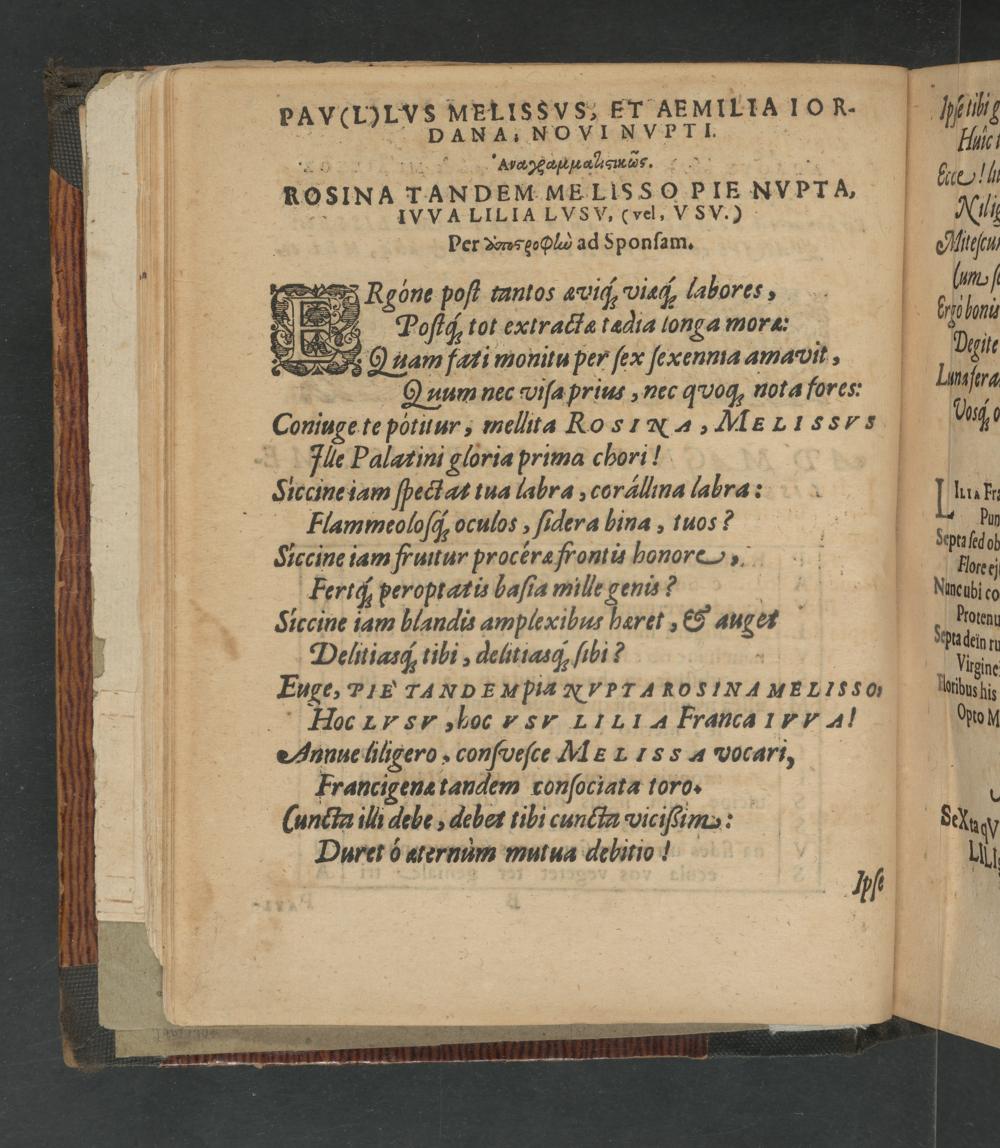 PAV(L)LVS MELISSVS, ET AEMILIA IOR-
DANA, NOVI NVPTI.
Ἀναγραμματιστικῶς.
ROSINA TANDEM MELISSO PIE NVPTA,
IVVA LILIA LVSV, (vel, VSV.)
Per ἀποστροφὴν ad Sponſam.
ERgóne poſt tantos æviq́; viæq́; labores,
Poſtq́; tot extractæ tædia longa moræ:
Quam fati monitu per ſex ſexennia amavit,
Quum nec viſa prius, nec quoq; nota fores:
Coniuge te pótitur, mellita ROSINA, MELISSVS
Ille Palatini gloria prima chori!
Siccine iam ſpectat tua labra, corállina labra:
Flammeoloſq́; oculos, ſidera bina, tuos?
Siccine iam fruitur procéræ frontis honore,
Fertq́; peroptatis baſia mille genis?
Siccine iam blandis amplexibus hæret, & auget
Delitiasq́; tibi, delitiasq́; ſibi?
Euge, PIE TANDEM pia NVPTA ROSINA MELISSO,
Hoc LVSV, hoc VSV LILIA Franca IVVA!
Annue liligero, conſveſce MELISSA vocari,
Francigenæ tandem conſociata toro.
Cuncta illi debe, debet tibi cuncta viciſſim:
Duret ó æternùm mutua debitio!
Ipſe
Ipſe tibi g
Huîc
Ecce! 
Nilig
Miteſcu
Cum ſ
Ergò bonis
Degite
Luna fera
Vosq́; 
LILIA Fra
Pun
Septa ſed ob
Flore ej
Nunc ubi co
Protenu
Septa dein ru
Virgine
Floribus his
Opto M
SeXta qV
LILI